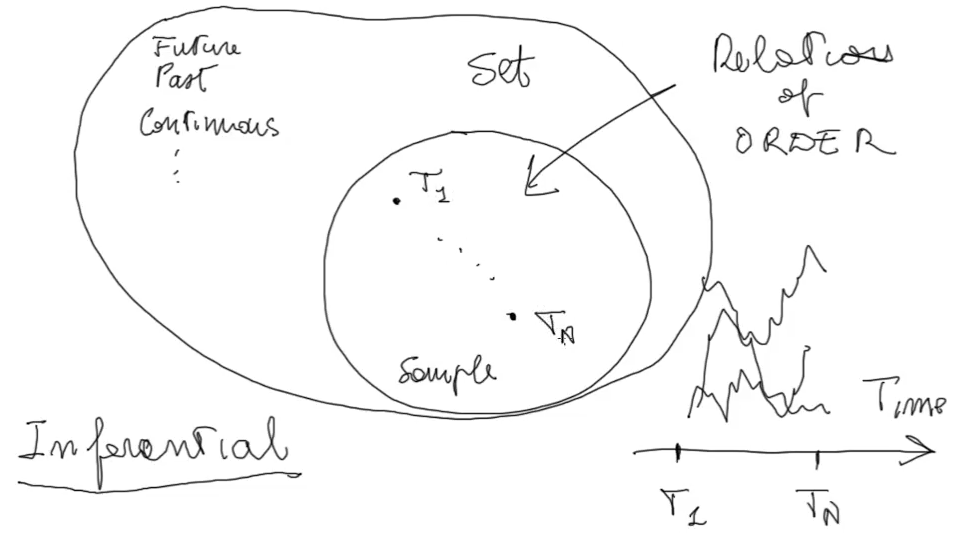 Future
Past
Continuous
Set
Relations
of
ORDER
T1
TN
Sample
Inferential
Time
T1
TN